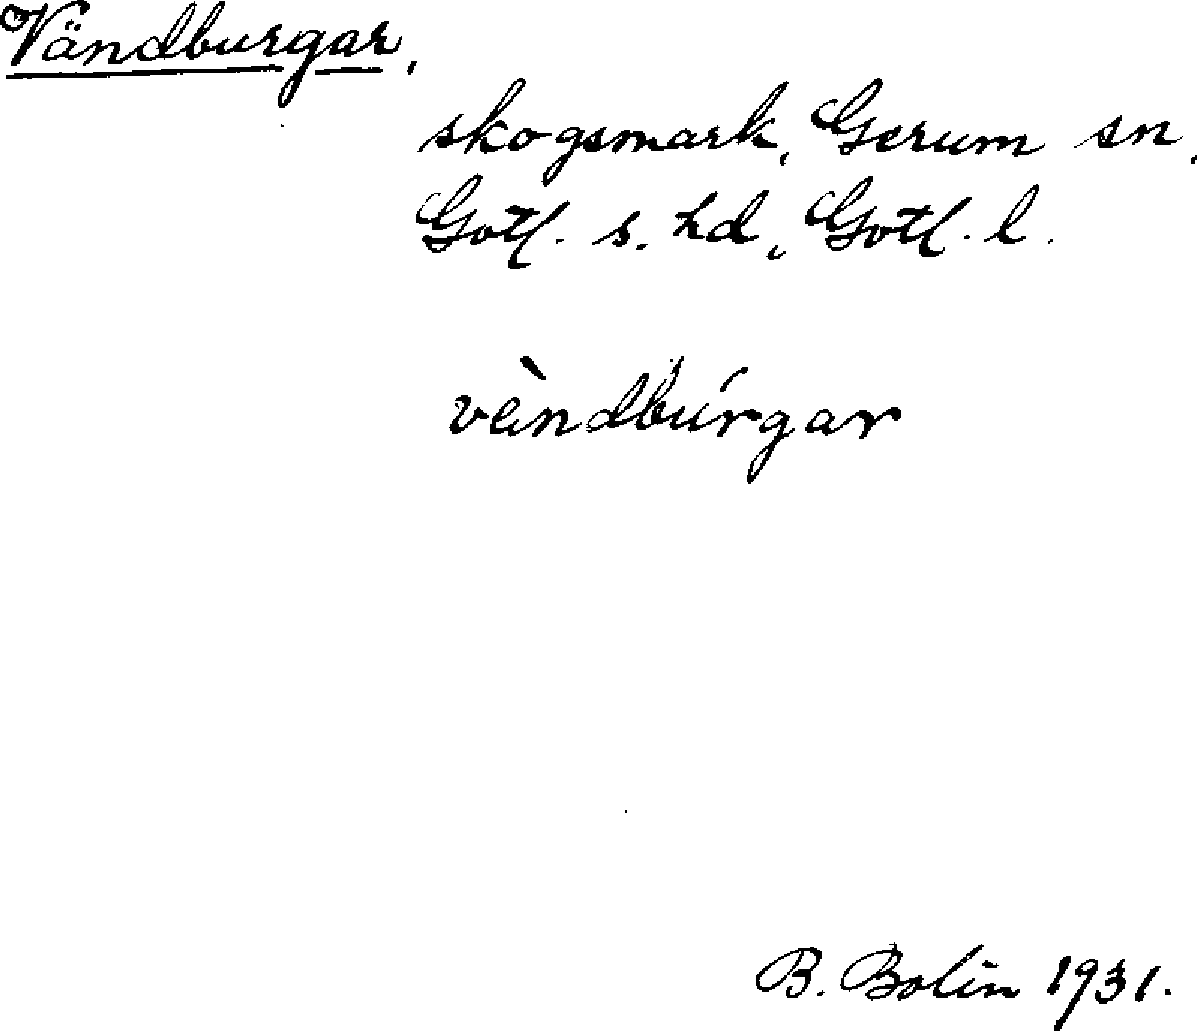 Vändburgar,
skogsmark, Gerum sn,
Gotl. s. hd, Gotl. l.
vèndbúrgar
B. Bolin 1931.